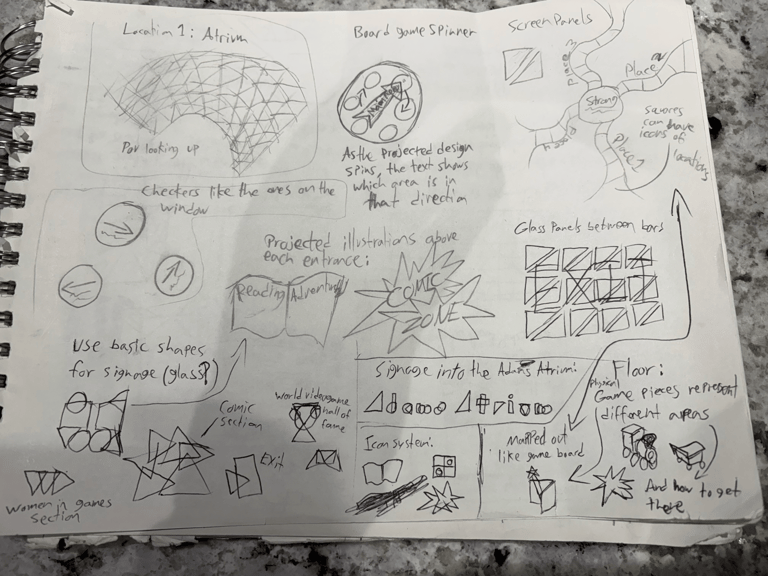 Location 1: Atrium
Pov looking up
Board game Spinner
As the projected design
spins, the text shows
which area is in
that direction
Screen Panels
Place 3
Place 2
Strong
Place 1
squares
can have
icons of
locations
Checkers like the ones on the
window
Projected illustrations above
each entrance:
Reading
Adventure
COMIC
ZONE
Glass Panels between bars
Use basic shapes
for signage (glass?)
Comic
section
World videogame
hall of
fame
Exit
Women in games
section
Signage into the Adams Atrium:
Icon system:
Mapped out
like game board
Floor:
Physical
Game pieces represent
different areas
And how to get
there